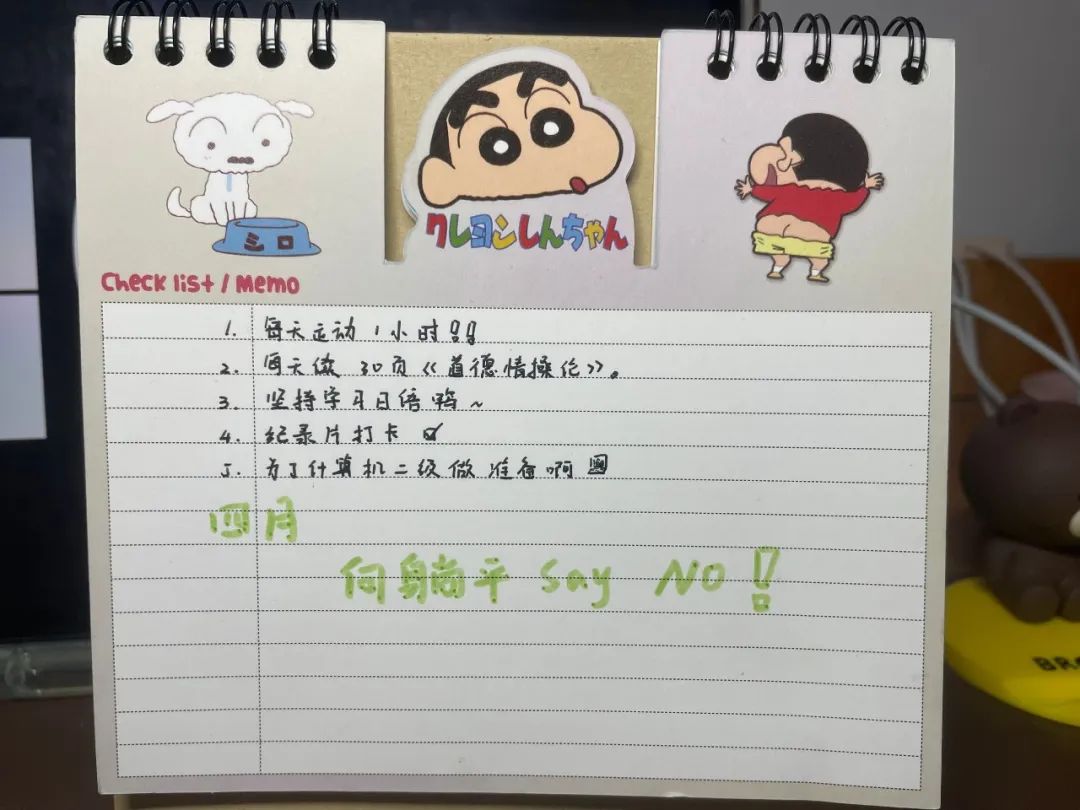 クレヨンしんちゃん
シロ
Check list / Memo
1. 每天运动1小时!!
2. 每天做30页《道德情操论》。
3. 坚持学习日语鸭~
4. 纪录片打卡
5. 为了计算机二级做准备啊
四月
向躺平 Say NO!
BR